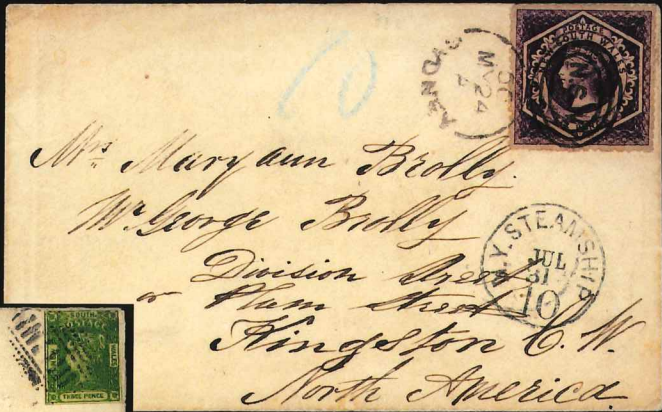 POSTAGE
NEW SOUTH WALES
SYDNEY
MY 24
NSW
10
Mrs Maryann Brolly.
Mr George Brolly
Division Street
or Plum Street
Kingston C. W.
North America.
N.Y. STEAMSHIP
JUL
31
10
SOUTH
WALES
THREE PENCE